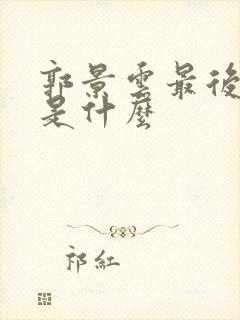 郭景雲最後
是什麼
祁紅